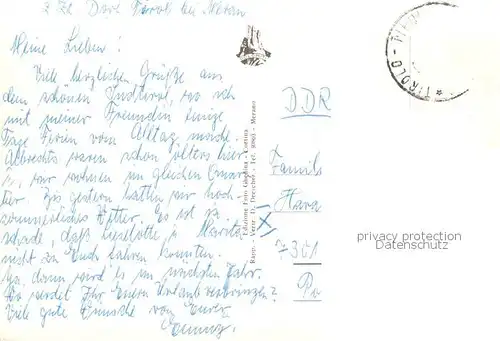 z Zt Dorf Tirol bei Meran
Meine Lieben!
Viele herzlichen Grüße aus
dem schönen Südtirol, wo ich
mit meiner Freundin einige
Tage Ferien vom Alltag mache.
Albrechts waren schon öfters hier
wir wohnen im gleichen Quar-
tier. Bis gestern hatten wir hoch-
sommerliches Wetter. Es ist so
schade, daß Lieselotte
nicht zu Euch fahren konnten.
Na, dann wird es im nächsten Jahr.
Wo werdet Ihr Euern Urlaub verbringen?
Viele gute Wünsche von Eurer
Edizione Foto Ghedina - Cortina
Rapp. - Vertr. D. - Tel. - Merano
DDR
Famili
7301
TIROLO -
privacy protection
Datenschutz